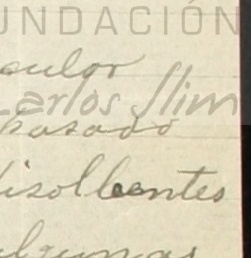 FUNDACIÓN
culor
Carlos Slim
basado
disolbentes
algunas